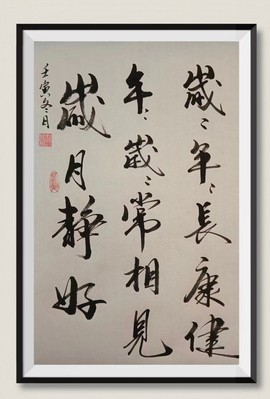 歲々年々長康健
年々歲々常相見
歲月靜好
壬寅冬月